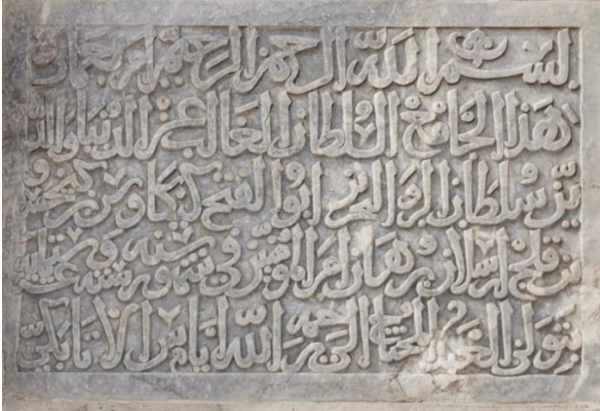 بسم الله الرحمن الرحيم امر بعمارة
هذا الجامع السلطان الغالب عز الدنيا والد
ين سلطان البر والبحرين ابو الفتح كيكاوس بن كيخسرو
بن قلج ارسلان برهان امير المؤمنين في شهور سنة وستمائة
بتولي العبد المحتاج الى رحمة الله اياس الاتابكي